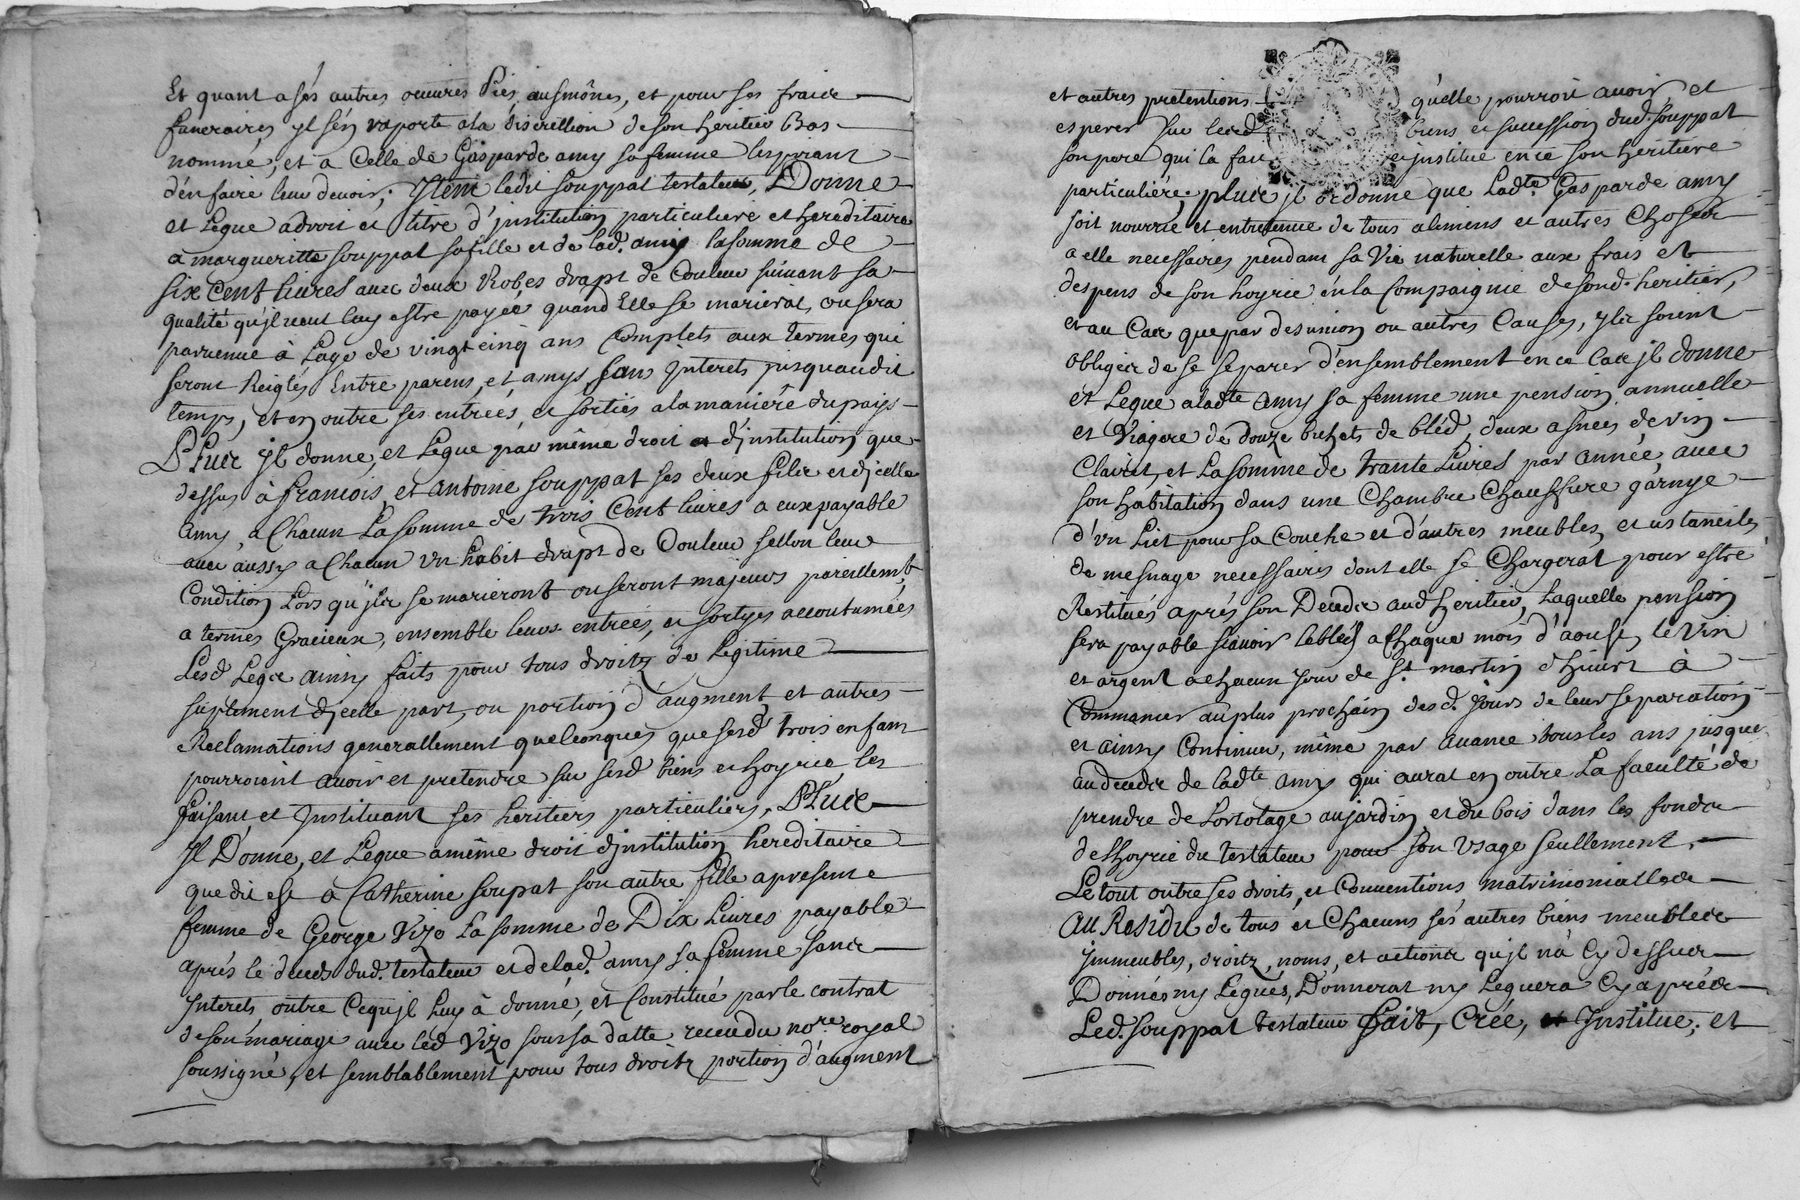 Et quant a sés autres oeuures Piés, ausmônes, et pour ses fraicx
funeraires yl s'en raporte ala discrettion de son heritier bas
nommé, et a Celle de Gasparde amy sa femme les priant
d'en faire leur devoir; Ytem ledit souppat testateur, Donne
et Legue adroit et titre d'jnstitution particuliere et hereditaire
a margueritte souppat sa fille et de lad. amy la somme de
six Cent liures auec deux Robes drapt de Couleur suiuant sa
qualité qu'jl ueut luy estre payée quand Elle se marierat, ou sera
paruenue à L'age de vingt cinq ans Complets aux termes qui
seront Reiglés Entre parens, et amys, san Interets jusquaudit
temps, et en outre ses entreés et sortiés ala maniére du pais
Plux yl donne, et Legue par même droit d'jnstitution que
dessus à francois, et antoine souppat ses deux filx et d'jcelle
amy, a Chacun La somme de trois Cent liures a eux payable
auec aussy a Chacun vn habit drapt de Couleur sellon leur
Condition Lors qu'ylx se marieront ou seront majeurs pareillemt.
a termes Gracieux, ensemble leurs entreés, et sortyes accoutumées
Lesd Legx ainsy faits pour tous droitz de Legitime
suplement d'jcelle part, ou portion d'augment, et autres
Reclamations generallement quelconques que sesd trois enfam
pourroient auoir et pretendre sur sesd biens et hoyrie, les
faisant et Jnstituant ses heritiers particuliers, Plux
Jl Donne, et Legue a même droit d'jnstitution hereditaire
que dit est a Catherine soupat son autre fille a presente
femme de George Vizo La somme de Dix Liures payable
aprés le deceds dud. testateur et de lad. amy sa femme sancx
Interets, outre Cequ'jl Luy à donné, et Constitué par le contrat
de son mariage auec led Vizo sous sa datte receu du nore. royal
soussigné, et semblablement pour tous droitz portion d'augment
et autres pretentions qu'elle pourroit auoir, et
esperer sur lesd biens et succession dud. souppat
son pere qui la fait et jnstitue en ce son heritiére
particuliére; plux jl ordonne que Ladte. Gasparde amy
soit nourrie et entretenue de tous alimens et autres Chosex
a elle necessaires pendant sa Vie naturelle aux frais et
despens de son hoyrie en la Compaignie de sond. heritier,
et au Cax que par desunion ou autres Causes, ylx soient
obligéx de se separer d'ensemblement en ce Cax jl donne
et Legue aladte amy sa femme une pension annuelle
et Viagere de douze bichets de bléd, deux asnées de vin
Clairet, et La somme de trante Liures par année auec
son habitation dans une Chambre Chauffure garnye
d'vn Lict pour sa Couche et d'autres meubles, et ustancils
de mesnage necessaires dont elle se Chargerat pour estre
Restitués aprés son Decedx aud heritier, Laquelle pension
sera payable sçauoir le bled a Chaque mois d'aoust, le Vin
et argent a chacun jour de st. martin d'hiuert à
Commancer au plus prochain desd. jours de leur separation
et ainsy Continuer, même par auance tous les ans jusque
au decedx de ladte amy qui aurat en outre La faculté de
prendre de L'ortolage au jardin et du bois dans les fondx
de L'hoyrie du testateur pour son Vsage seullement,
Le tout outre ses droits, et Conuentions matrimoniallex
Au Residu de tous et Chacuns sés autres biens meublex
jmmeubles, droitz, noms, et actions qu'jl n'à Cy dessux
Donnés ny Legués, Donnerat ny Leguera Cy apréx
Led. souppat testateur fait, Crée, Jnstitue, et